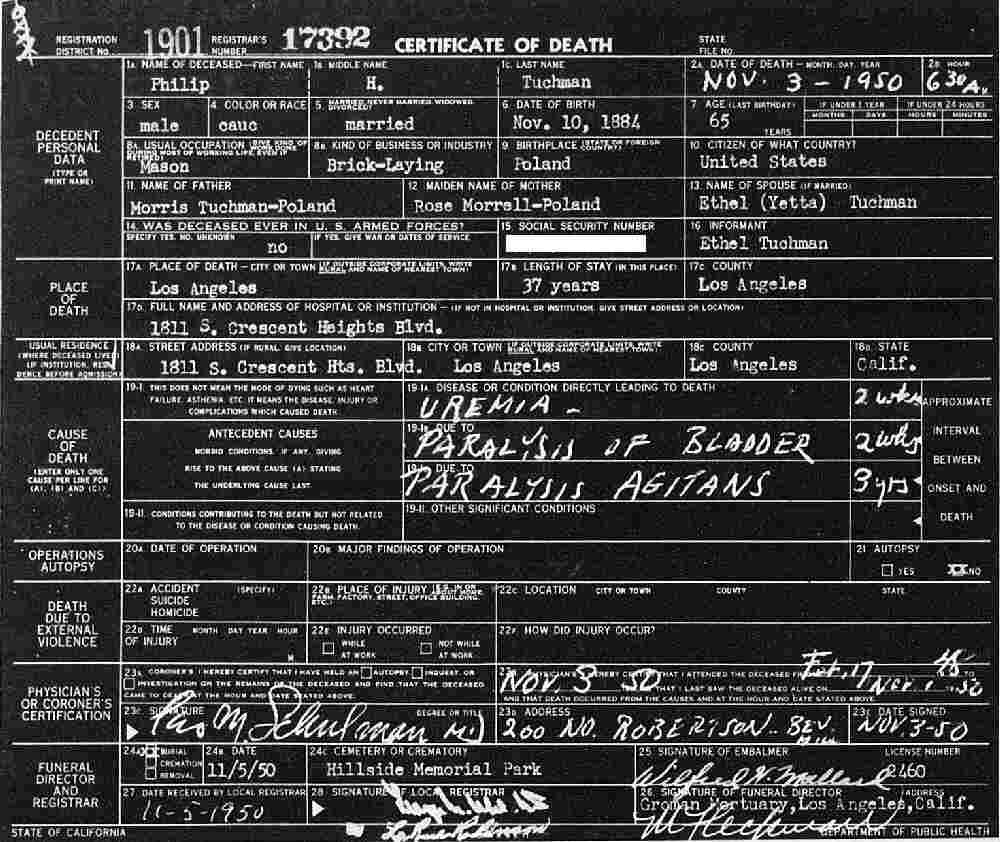 REGISTRATION DISTRICT NO. 1901 REGISTRAR'S NUMBER 17392 CERTIFICATE OF DEATH STATE FILE NO.
DECEDENT PERSONAL DATA (TYPE OR PRINT NAME)
1A. NAME OF DECEASED—FIRST NAME Philip
MIDDLE NAME H.
1C. LAST NAME Tuchman
DATE OF DEATH—MONTH, DAY, YEAR NOV. 3-1950
HOUR 6 30 A
3. SEX male
4. COLOR OR RACE cauc
5. MARRIED, NEVER MARRIED, WIDOWED, DIVORCED? married
6. DATE OF BIRTH Nov. 10, 1884
7. AGE (LAST BIRTHDAY) 65 YEARS
IF UNDER 1 YEAR MONTHS DAYS
IF UNDER 24 HOURS HOURS MINUTES
8A. USUAL OCCUPATION (GIVE KIND OF WORK DONE DURING MOST OF WORKING LIFE, EVEN IF RETIRED) Mason
KIND OF BUSINESS OR INDUSTRY Brick-Laying
9. BIRTHPLACE (STATE OR FOREIGN COUNTRY) Poland
10. CITIZEN OF WHAT COUNTRY? United States
11. NAME OF FATHER Morris Tuchman-Poland
12. MAIDEN NAME OF MOTHER Rose Morrell-Poland
13. NAME OF SPOUSE (IF MARRIED) Ethel (Yetta) Tuchman
14. WAS DECEASED EVER IN U. S. ARMED FORCES?
SPECIFY YES, NO, UNKNOWN no
IF YES, GIVE WAR OR DATES OF SERVICE
15. SOCIAL SECURITY NUMBER
16. INFORMANT Ethel Tuchman
PLACE OF DEATH
17A. PLACE OF DEATH—CITY OR TOWN (IF OUTSIDE CORPORATE LIMITS, WRITE RURAL AND NAME OF NEAREST TOWN) Los Angeles
LENGTH OF STAY (IN THIS PLACE) 37 years
17C. COUNTY Los Angeles
FULL NAME AND ADDRESS OF HOSPITAL OR INSTITUTION—(IF NOT IN HOSPITAL OR INSTITUTION, GIVE STREET ADDRESS OR LOCATION)
1811 S. Crescent Heights Blvd.
USUAL RESIDENCE (WHERE DECEASED LIVED) (IF INSTITUTION, RESIDENCE BEFORE ADMISSION)
18A. STREET ADDRESS (IF RURAL, GIVE LOCATION) 1811 S. Crescent Hts. Blvd.
CITY OR TOWN (IF OUTSIDE CORPORATE LIMITS, WRITE RURAL AND NAME OF NEAREST TOWN) Los Angeles
18C. COUNTY Los Angeles
STATE Calif.
CAUSE OF DEATH (ENTER ONLY ONE CAUSE PER LINE FOR (A), (B) AND (C))
19-I. THIS DOES NOT MEAN THE MODE OF DYING SUCH AS HEART FAILURE, ASTHENIA, ETC. IT MEANS THE DISEASE, INJURY OR COMPLICATIONS WHICH CAUSED DEATH.
19-IA. DISEASE OR CONDITION DIRECTLY LEADING TO DEATH UREMIA - 2 wks
ANTECEDENT CAUSES MORBID CONDITIONS, IF ANY, GIVING RISE TO THE ABOVE CAUSE (A) STATING THE UNDERLYING CAUSE LAST.
DUE TO PARALYSIS OF BLADDER 2 wks
DUE TO PARALYSIS AGITANS 3 yrs
APPROXIMATE INTERVAL BETWEEN ONSET AND DEATH
19-II. CONDITIONS CONTRIBUTING TO THE DEATH BUT NOT RELATED TO THE DISEASE OR CONDITION CAUSING DEATH.
19-II. OTHER SIGNIFICANT CONDITIONS
OPERATIONS AUTOPSY
20A. DATE OF OPERATION
MAJOR FINDINGS OF OPERATION
21. AUTOPSY YES XX NO
DEATH DUE TO EXTERNAL VIOLENCE
22A. ACCIDENT SUICIDE HOMICIDE (SPECIFY)
PLACE OF INJURY (E.G. IN OR ABOUT HOME, FARM, FACTORY, STREET, OFFICE BUILDING, ETC.)
22C. LOCATION CITY OR TOWN COUNTY STATE
TIME OF INJURY MONTH DAY YEAR HOUR M
22E. INJURY OCCURRED WHILE AT WORK NOT WHILE AT WORK
22F. HOW DID INJURY OCCUR?
PHYSICIAN'S OR CORONER'S CERTIFICATION
CORONER'S: I HEREBY CERTIFY THAT I HAVE HELD AN AUTOPSY, INQUEST, OR INVESTIGATION ON THE REMAINS OF THE DECEASED AND FIND THAT THE DECEASED CAME TO DEATH AT THE HOUR AND DATE STATED ABOVE.
PHYSICIAN'S: I HEREBY CERTIFY THAT I ATTENDED THE DECEASED Feb. 17 48 TO
NOV 3 50 THAT I LAST SAW THE DECEASED ALIVE ON Nov. 1 1950
AND THAT DEATH OCCURRED FROM THE CAUSES AND AT THE HOUR AND DATE STATED ABOVE.
23C. SIGNATURE M. Schulman M.D DEGREE OR TITLE
ADDRESS 200 NO. ROBERTSON. BEV.
DATE SIGNED NOV. 3-50
FUNERAL DIRECTOR AND REGISTRAR
24A. XX BURIAL CREMATION REMOVAL
DATE 11/5/50
24C. CEMETERY OR CREMATORY Hillside Memorial Park
25. SIGNATURE OF EMBALMER Wilfred H. Mallard LICENSE NUMBER 2460
27. DATE RECEIVED BY LOCAL REGISTRAR 11-5-1950
28. SIGNATURE OF LOCAL REGISTRAR
26. SIGNATURE OF FUNERAL DIRECTOR ADDRESS
Groman Mortuary, Los Angeles, Calif.
STATE OF CALIFORNIA DEPARTMENT OF PUBLIC HEALTH